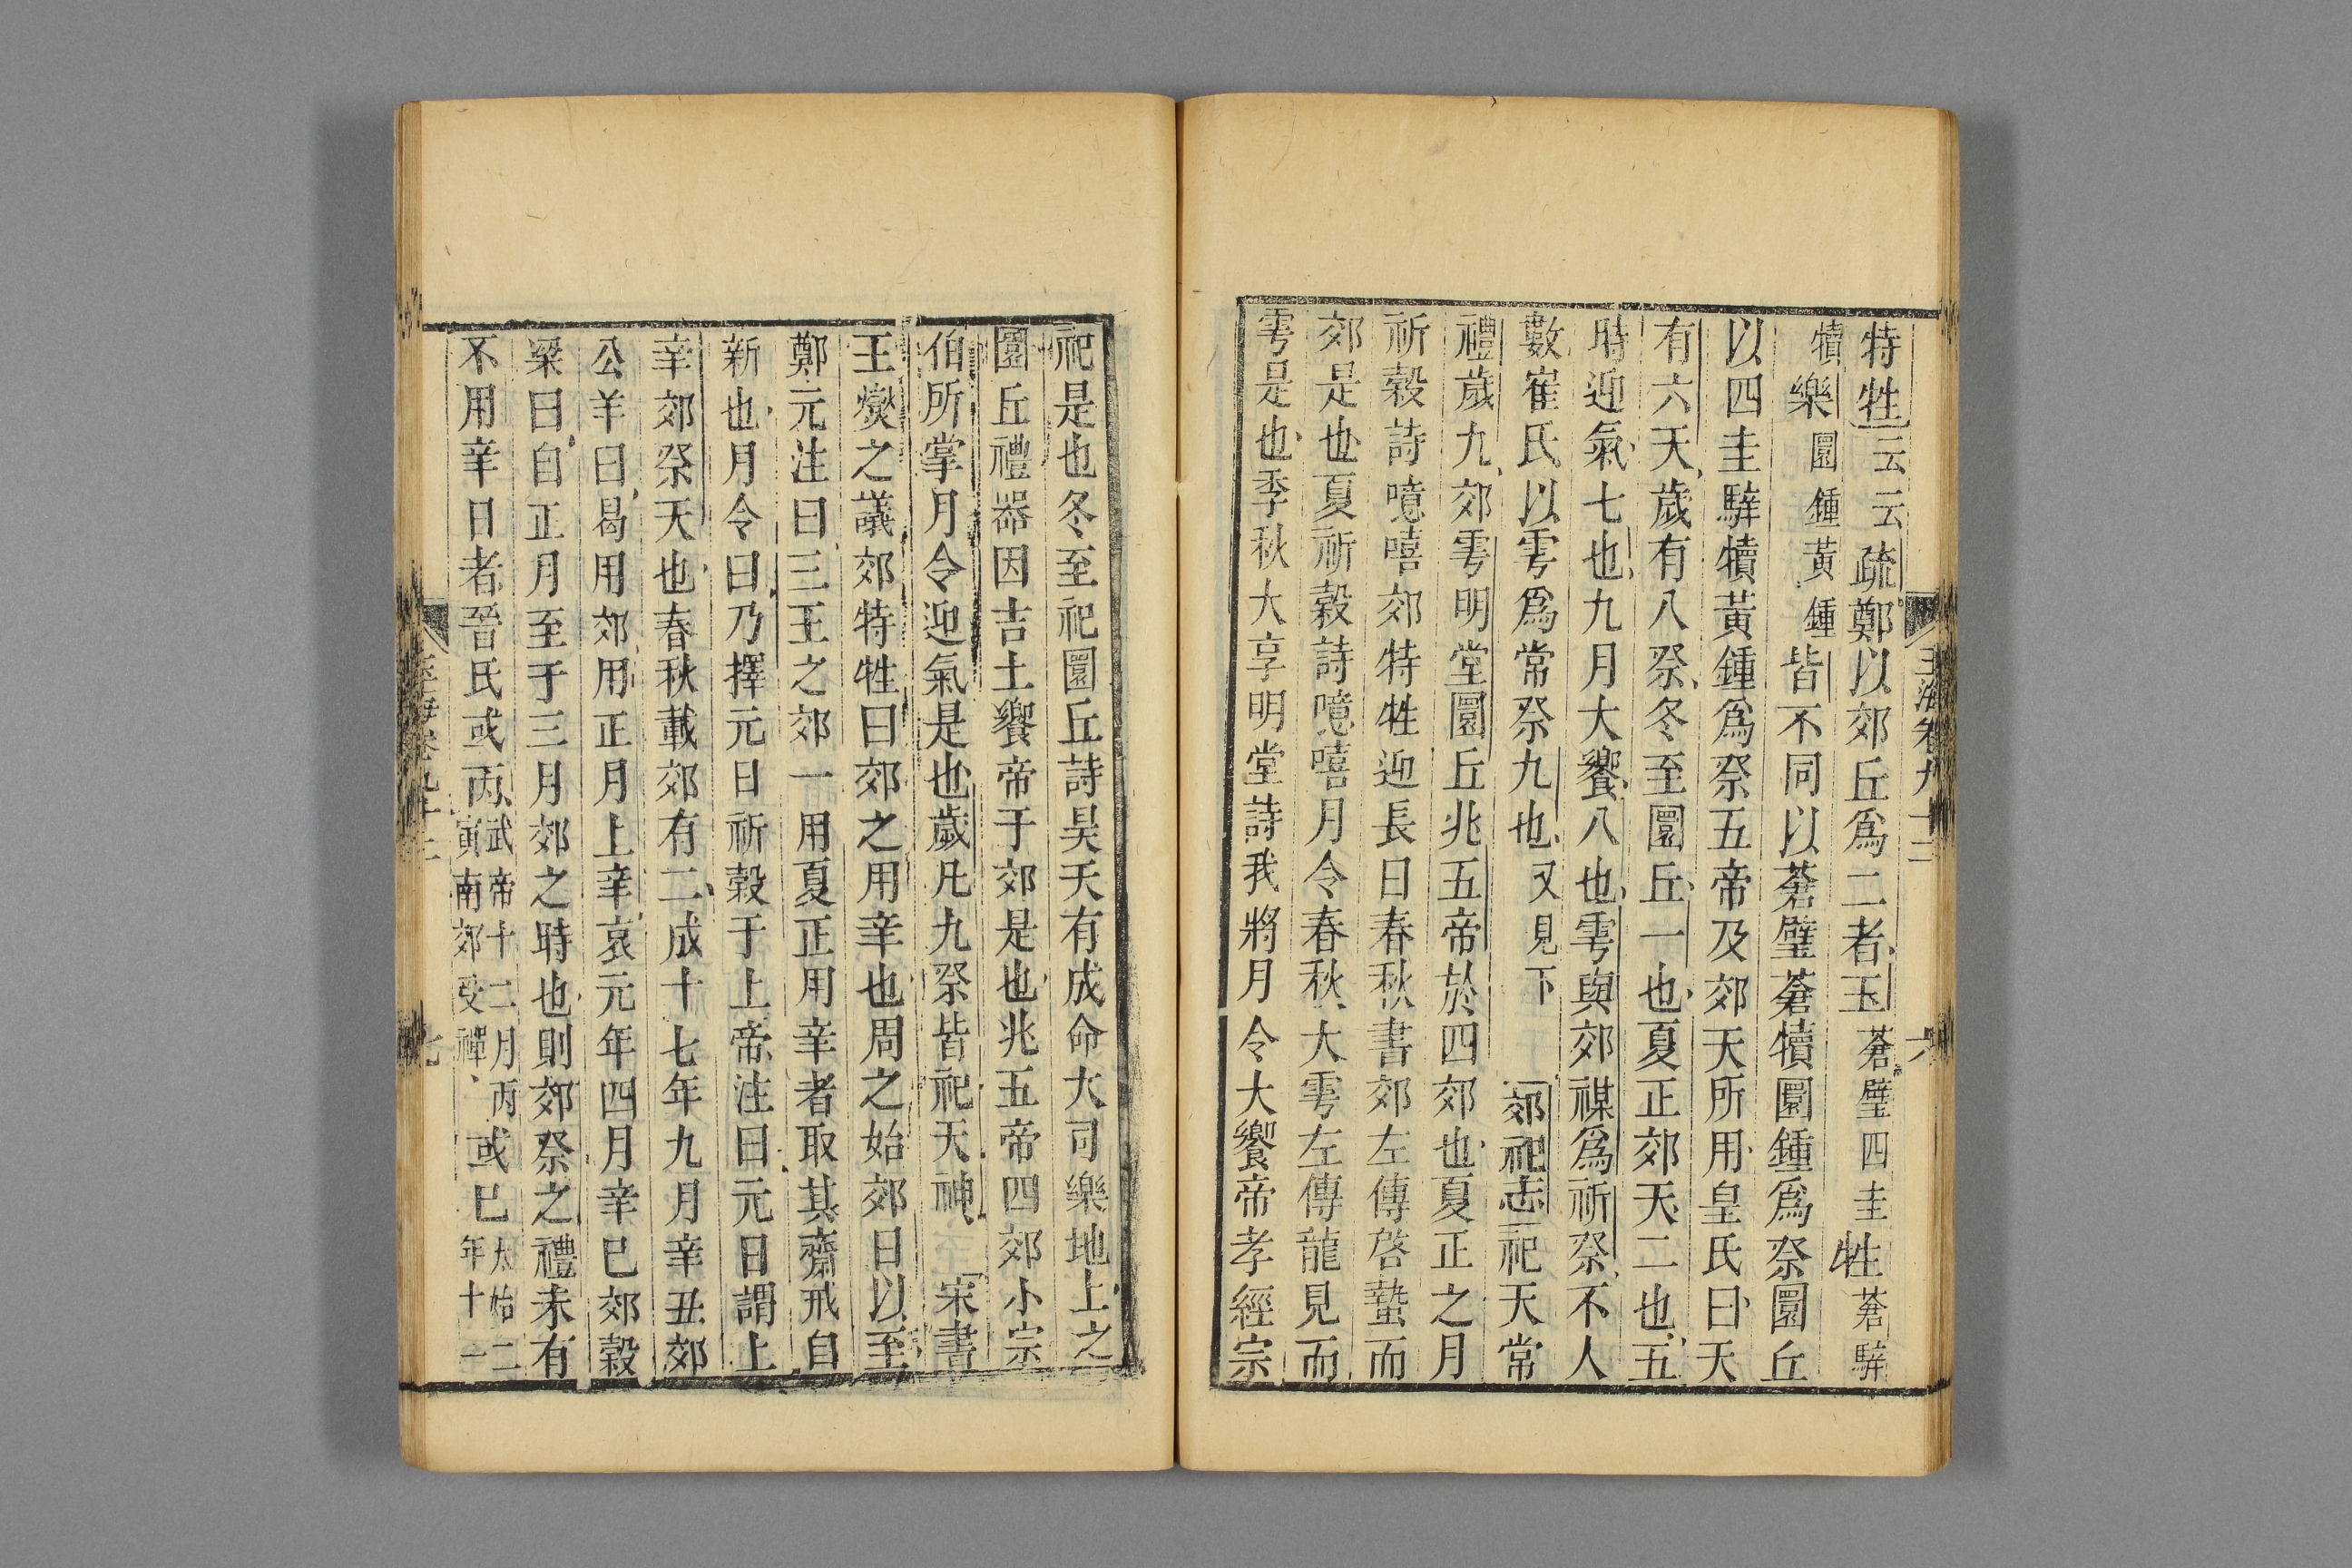 玉海卷九十二 六
特牲云云疏鄭以郊丘爲二者玉蒼璧四圭牲蒼騂
犢樂圜鍾黃鍾皆不同以蒼璧蒼犢圜鍾爲祭圜丘
以四圭騂犢黃鍾爲祭五帝及郊天所用皇氏曰天
有六天歲有八祭冬至圜丘一也夏正郊天二也五
時迎氣七也九月大饗八也雩與郊禖爲祈祭不入
數崔氏以雩爲常祭九也又見下 郊祀志祀天常
禮歲九郊雩明堂圜丘兆五帝於四郊也夏正之月
祈穀詩噫嘻郊特牲迎長日春秋書郊左傳啓蟄而
郊是也夏祈穀詩噫嘻月令春秋大雩左傳龍見而
雩是也季秋大享明堂詩我將月令大饗帝孝經宗
祀是也冬至祀圜丘詩昊天有成命大司樂地上之
圜丘禮器因吉土饗帝于郊是也兆五帝四郊小宗
伯所掌月令迎氣是也歲凡九祭皆祀天神 宋書
王燮之議郊特牲曰郊之用辛也周之始郊日以至
鄭元注曰三王之郊一用夏正用辛者取其齋戒自
新也月令曰乃擇元日祈穀于上帝注曰元日謂上
辛郊祭天也春秋載郊有二成十七年九月辛丑郊
公羊曰曷用郊用正月上辛哀元年四月辛巳郊穀
梁曰自正月至于三月郊之時也則郊祭之禮未有
不用辛日者晉氏或丙武帝十二月丙寅南郊受禪或巳太始二年十一
玉海卷九十二 七